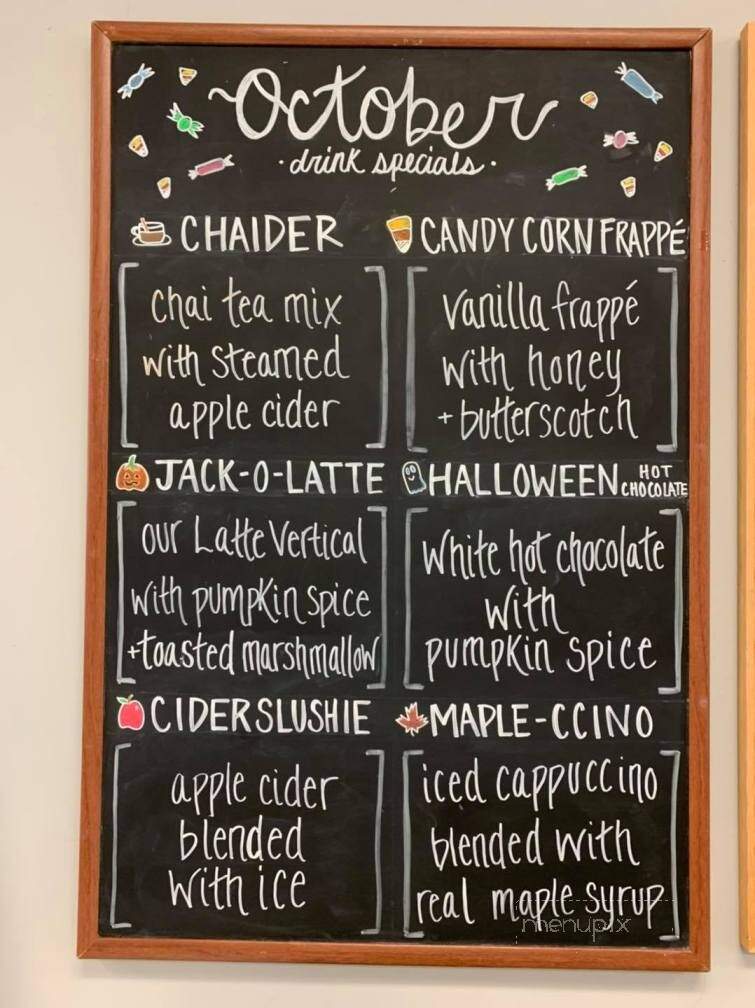 October
·drink specials·
CHAIDER
chai tea mix
with steamed
apple cider
CANDY CORN FRAPPÉ
vanilla frappé
with honey
+ butterscotch
JACK-O-LATTE
our Latte Vertical
with pumpkin spice
+toasted marshmallow
HALLOWEEN HOT CHOCOLATE
white hot chocolate
with
pumpkin spice
CIDER SLUSHIE
apple cider
blended
with ice
MAPLE-CCINO
iced cappuccino
blended with
real maple syrup
menupix